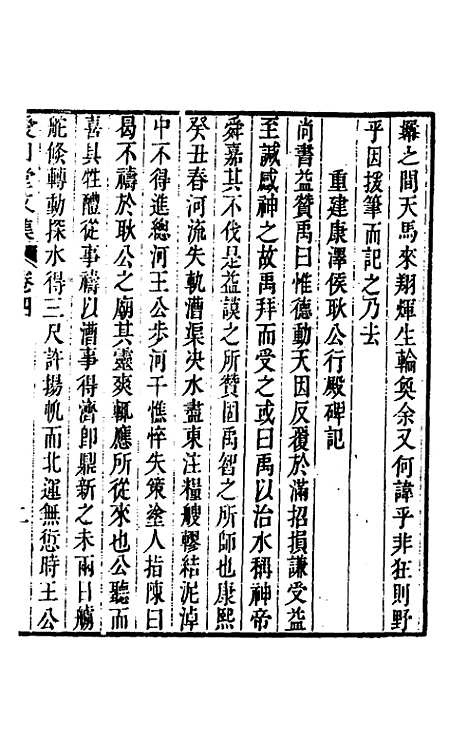 羅之間天馬來翔輝生輪奐余又何諱乎非狂則野
乎因援筆而記之乃去
重建康澤侯耿公行殿碑記
尚書益贊禹曰惟德動天因反覆於滿招損謙受益
至誠感神之故禹拜而受之或曰禹以治水稱神帝
舜嘉其不伐是益謨之所贊固禹智之所師也康熙
癸丑春河流失軌漕渠决水盡東注糧艘轇結泥淖
中不得進總河王公步河干憔悴失策塗人指陳曰
曷不禱於耿公之廟其靈爽輒應所從來也公聽而
喜具牲醴從事禱以漕事得濟卽鼎新之未兩日艣
舵倐轉動探水得三尺許揚帆而北運無愆時王公
堂文集
卷四